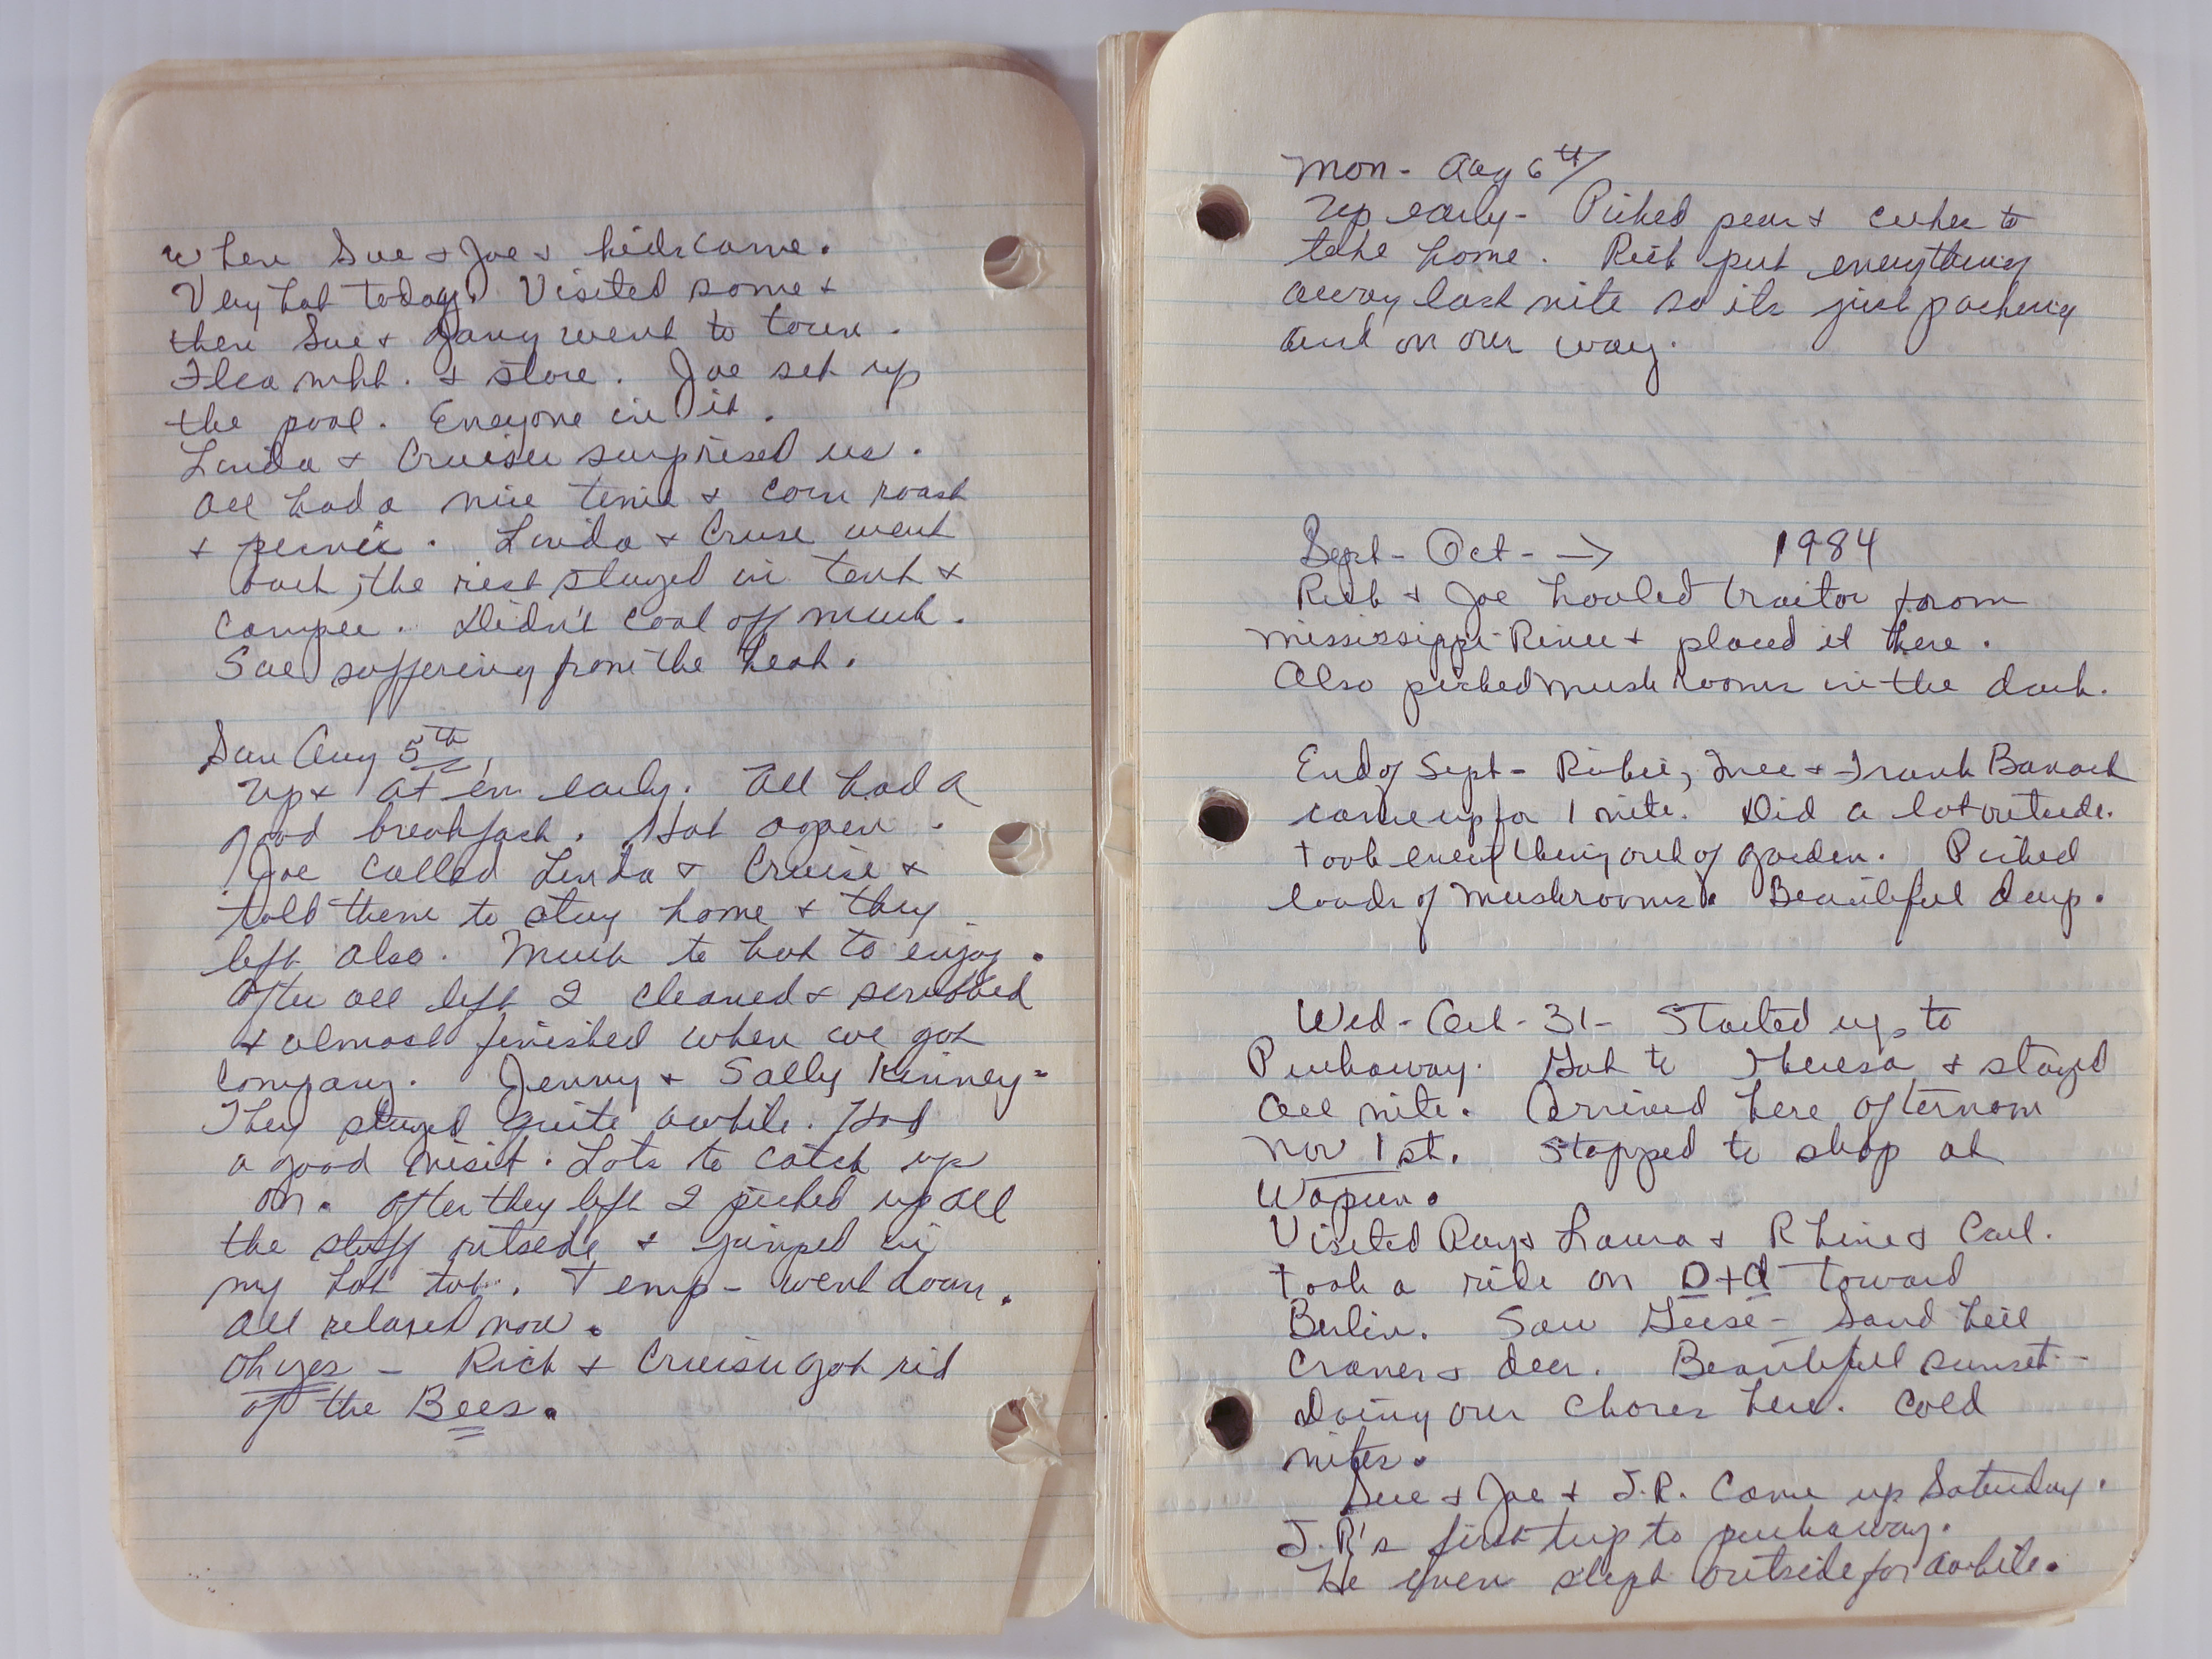 when Sue + Joe + kids came.
Very hot today. Visited some +
then Sue + Jany went to town.
Flea mkt. + store. Joe set up
the pool. Eneyone in it.
Linda + Cruiser surprised us.
All had a nice time + corn roast
+ picnic. Linda + Cruse went
back, the rest stayed in tent +
camper. Didn't cool off much.
Sue suffering from the heat.
Sun Aug 5th,
Up + at em early. All had a
good breakfast. Hot again.
Joe called Linda + Cruise +
told them to stay home + they
left also. Much to hot to enjoy.
After all left I cleaned + scrubbed
+ almost finished when we got
company. Jenny + Sally Kinney-
They stayed quite awhile. Had
a good visit. Lots to catch up
on. After they left I picked up all
the stuff outside + jumped in
my hot tub. Temp- went down.
All relaxed now.
Oh yes - Rich + Cruiser got rid
of the Bees.
Mon- Aug 6th
Up early- Picked pears + cukes to
take home. Rich put everything
away last nite so its just packing
and on our way.
Sept- Oct- → 1984
Rich + Joe hauled traitor from
Mississippi River + placed it there.
Also picked mushrooms in the dark.
End of Sept- Richie, + Frank
came up for 1 nite. Did a lot outside.
took everything out of garden. Picked
loads of mushrooms. Beautiful days.
Wed- Oct- 31- Started up to
Puckaway. Got to Theresa + stayed
all nite. Arrived here afternoon
Nov 1st. Stopped to shop at
Waupun.
Visited Ray + Laura + Rhine + Carl.
took a ride on D+d toward
Berlin. Saw Geese- Sand hill
Cranes + deer. Beautiful sunset-
Doing our chores here. Cold
nites.
Sue + Joe + J.R. Came up Saturday.
J.R's first trip to puckaway.
He even slept outside for awhile.